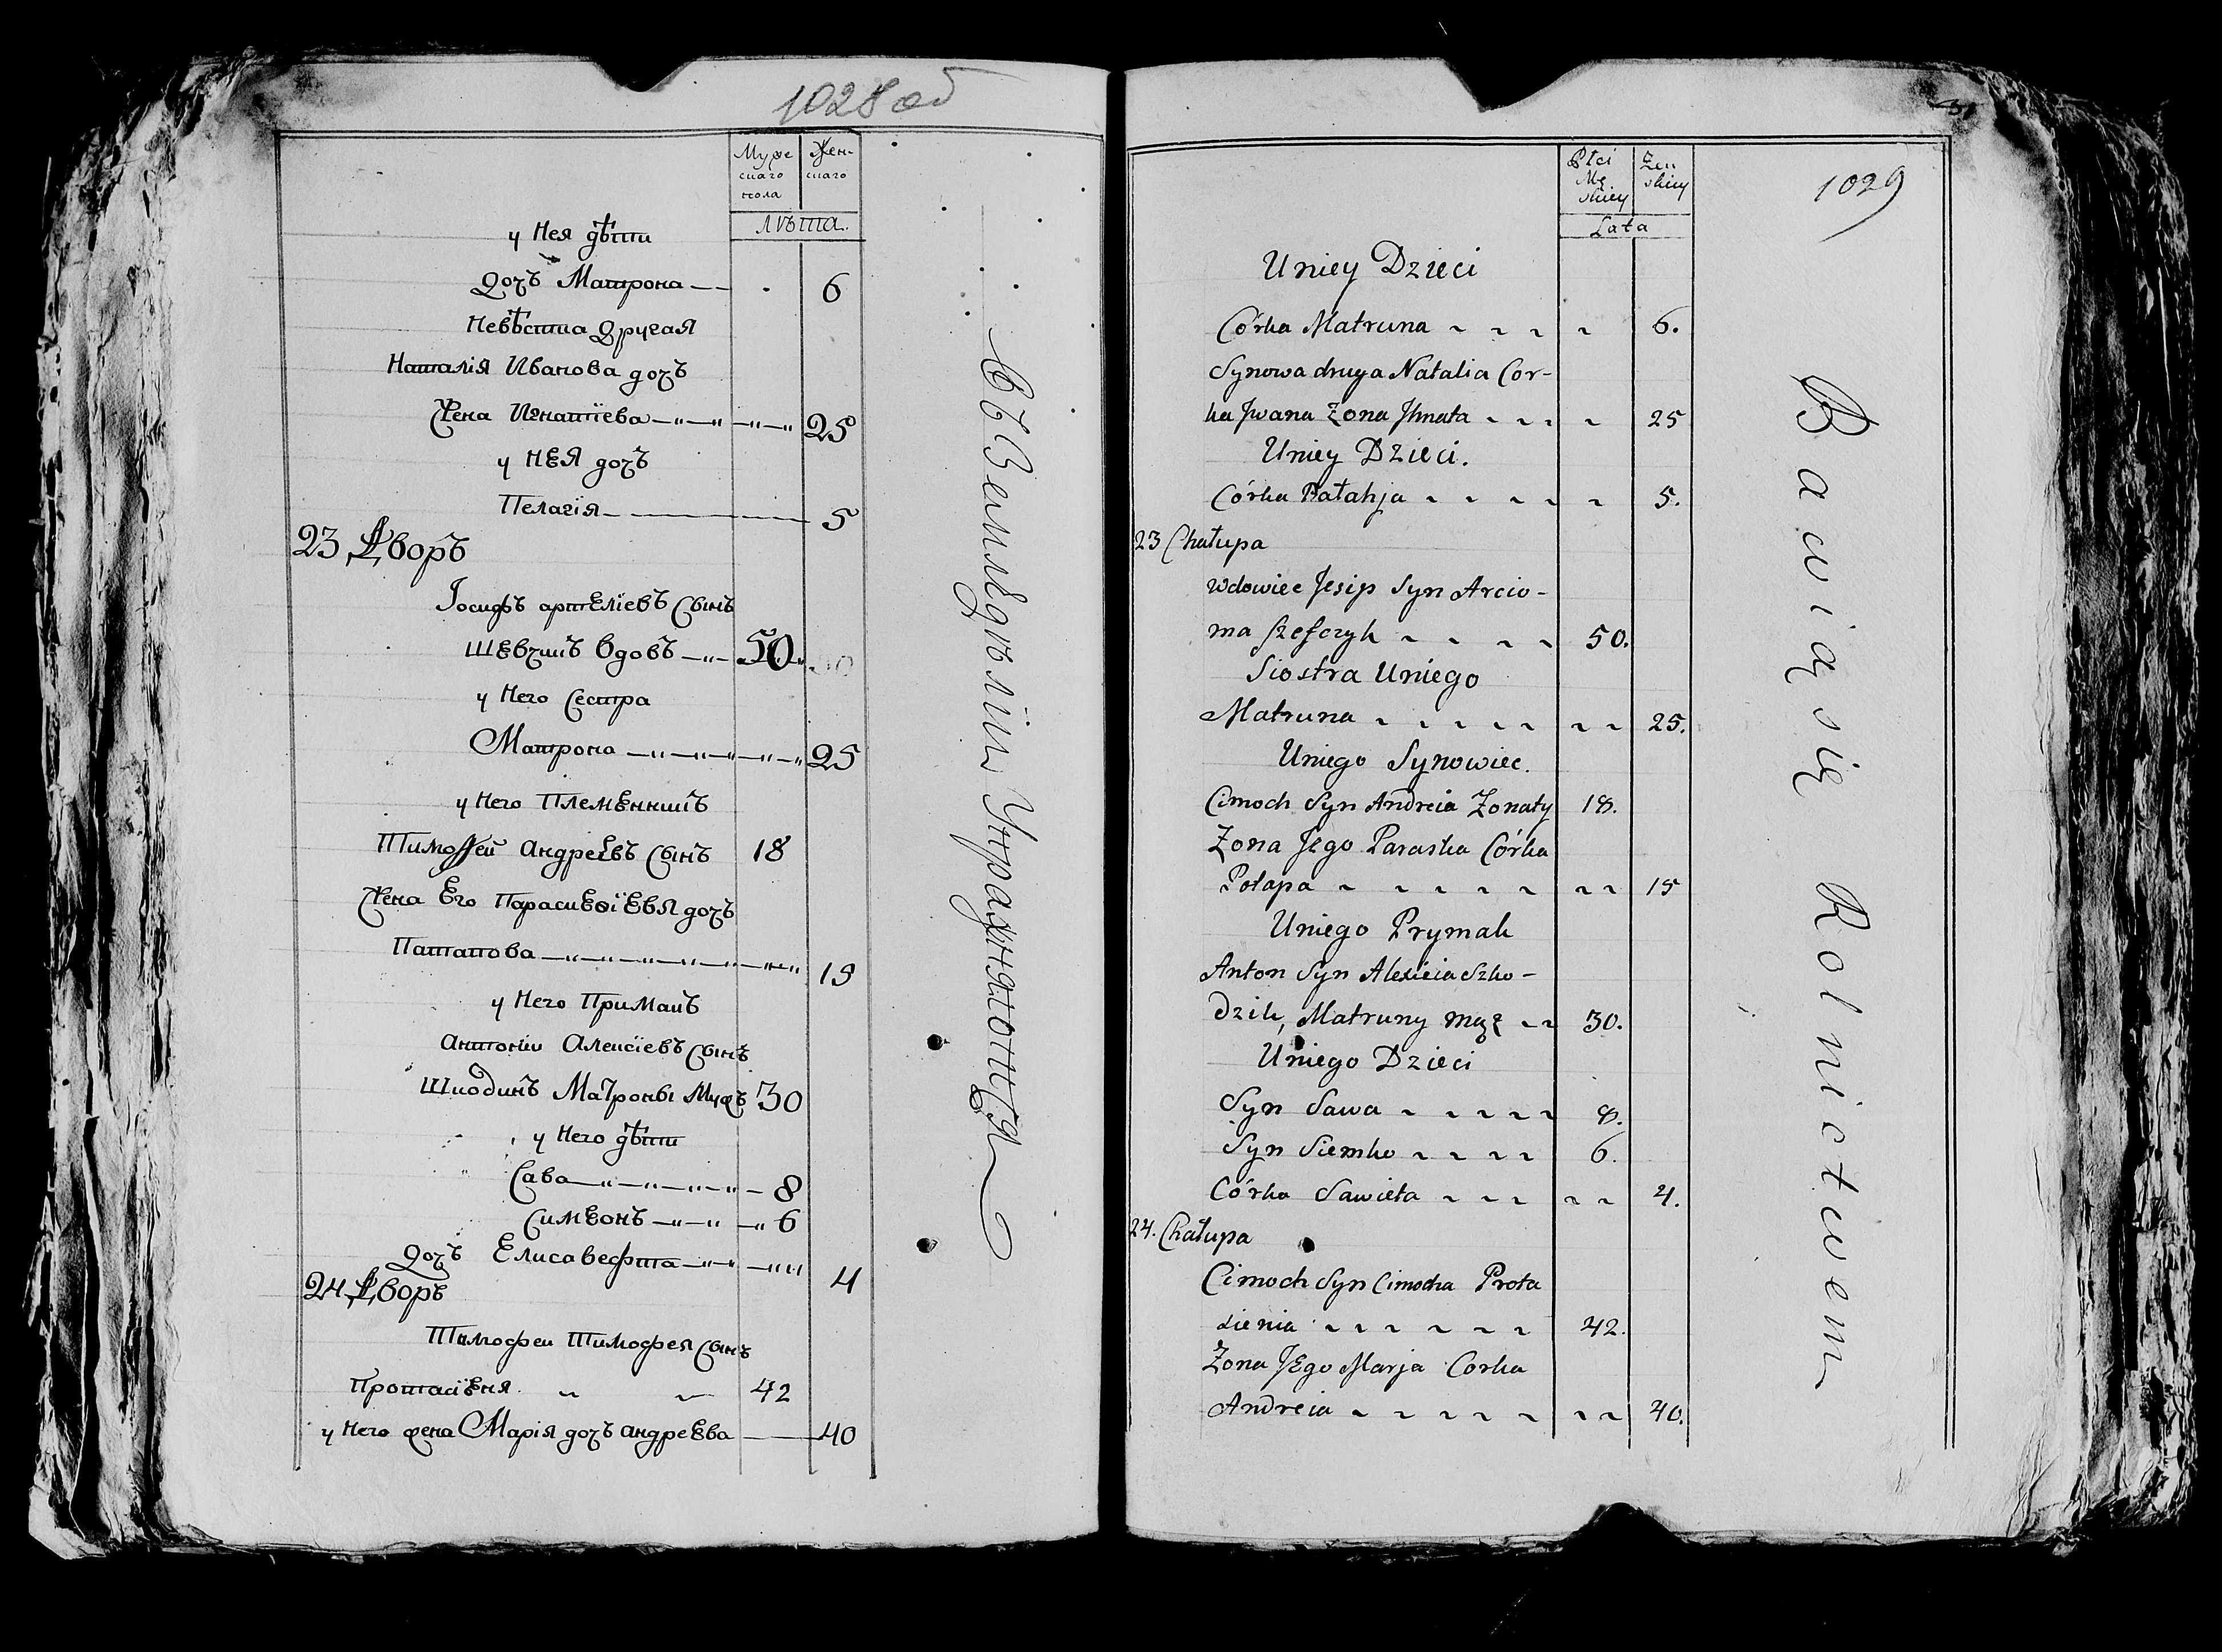 1028 об
Муже
скаго
пола
Жен-
скаго
лѣта.
у Нея дѣти
Дочь Матрона 6
Невѣстка Другая
Наталія Иванова дочъ
Жена Игнатіева 25
у Нея дочъ
Пелагія 5
23 Дворъ
Іосифъ артеміевъ Сынъ
Шевчикъ вдовъ 50
у Него Сестра
Матрона 25
у Него Племенникъ
Тимофей Андреевъ Сынъ 18
Жена Его Параскевіевя дочъ
Патапова 15
у Него Примакъ
Антоній Алексіевъ Сынъ
Шкодикъ Матроны Мужъ 30
у Него дѣти
Сава 8
Симеонъ 6
Дочъ Елисавефта 4
24 Дворъ
Тимофеи Тимофея Сынъ
Протасѣня 42
у Него жена Марія дочъ андреева 40
въ Земледѣліи Упражняются
1029
Płci
Mę
skiey
Żeń
skiey
Lata
Uniey Dzieci
Córka Matruna 6.
Synowa druga Natalia Cor-
ka Jwana Żona Jhnata 25
Uniey Dzieci.
Córka Pałahja 5.
23 Chałupa
Wdowiec Jesip Syn Arcio-
ma Szefczyk 50.
Siostra Uniego
Matruna 25.
Uniego Synowiec.
Cimoch Syn Andreia Żonaty 18.
Żona Jego Paraska Córka
Potapa 15
Uniego Prymak
Anton Syn Alexieia Szko-
dzik, Matruny mąż 30.
Uniego Dzieci
Syn Sawa 8.
Syn Siemko 6.
Córka Sawieta 4.
24. Chałupa
Cimoch Syn Cimocha Prota
sienia 42.
Żona Jego Marja Corka
Andreia 40.
Bawią się Rolnictwem